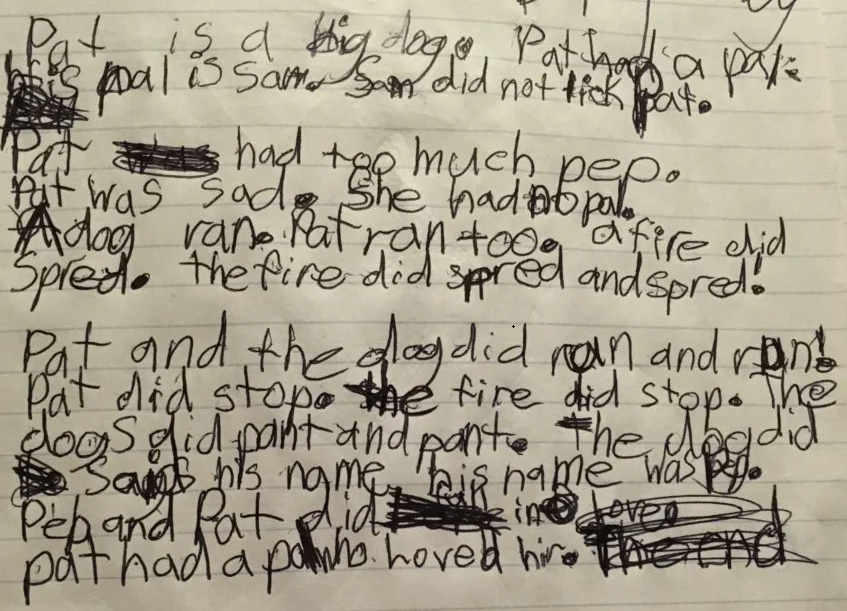 Pat is a big dog. Pat had a pal.
his pal is Sam. Sam did not lick pat.
Pat had too much pep.
Pat was sad. She had no pal.
A dog ran. Pat ran too. a fire did
Spred. the fire did spred and spred!
Pat and the dog did ran and run!
Pat did stop. the fire did stop. The
dogs did pant and pant. The dog did
his name his name was
Pep and Pat did in
pat had a pal who loved